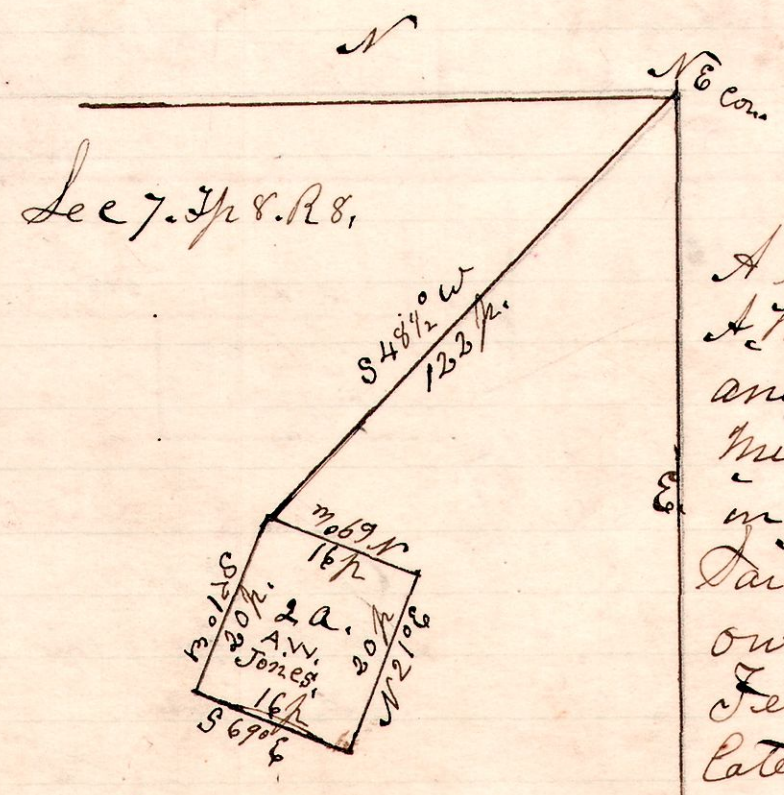 N
NE Cor.
Sec 7. Tp 8. R 8.
S 48 1/2° W
122 p.
E.
N 69° W
16 p
S 21° W
20 p.
2 a.
A.W.
Jones
20 p
N 21° E
16 p
S 69° E
A
in